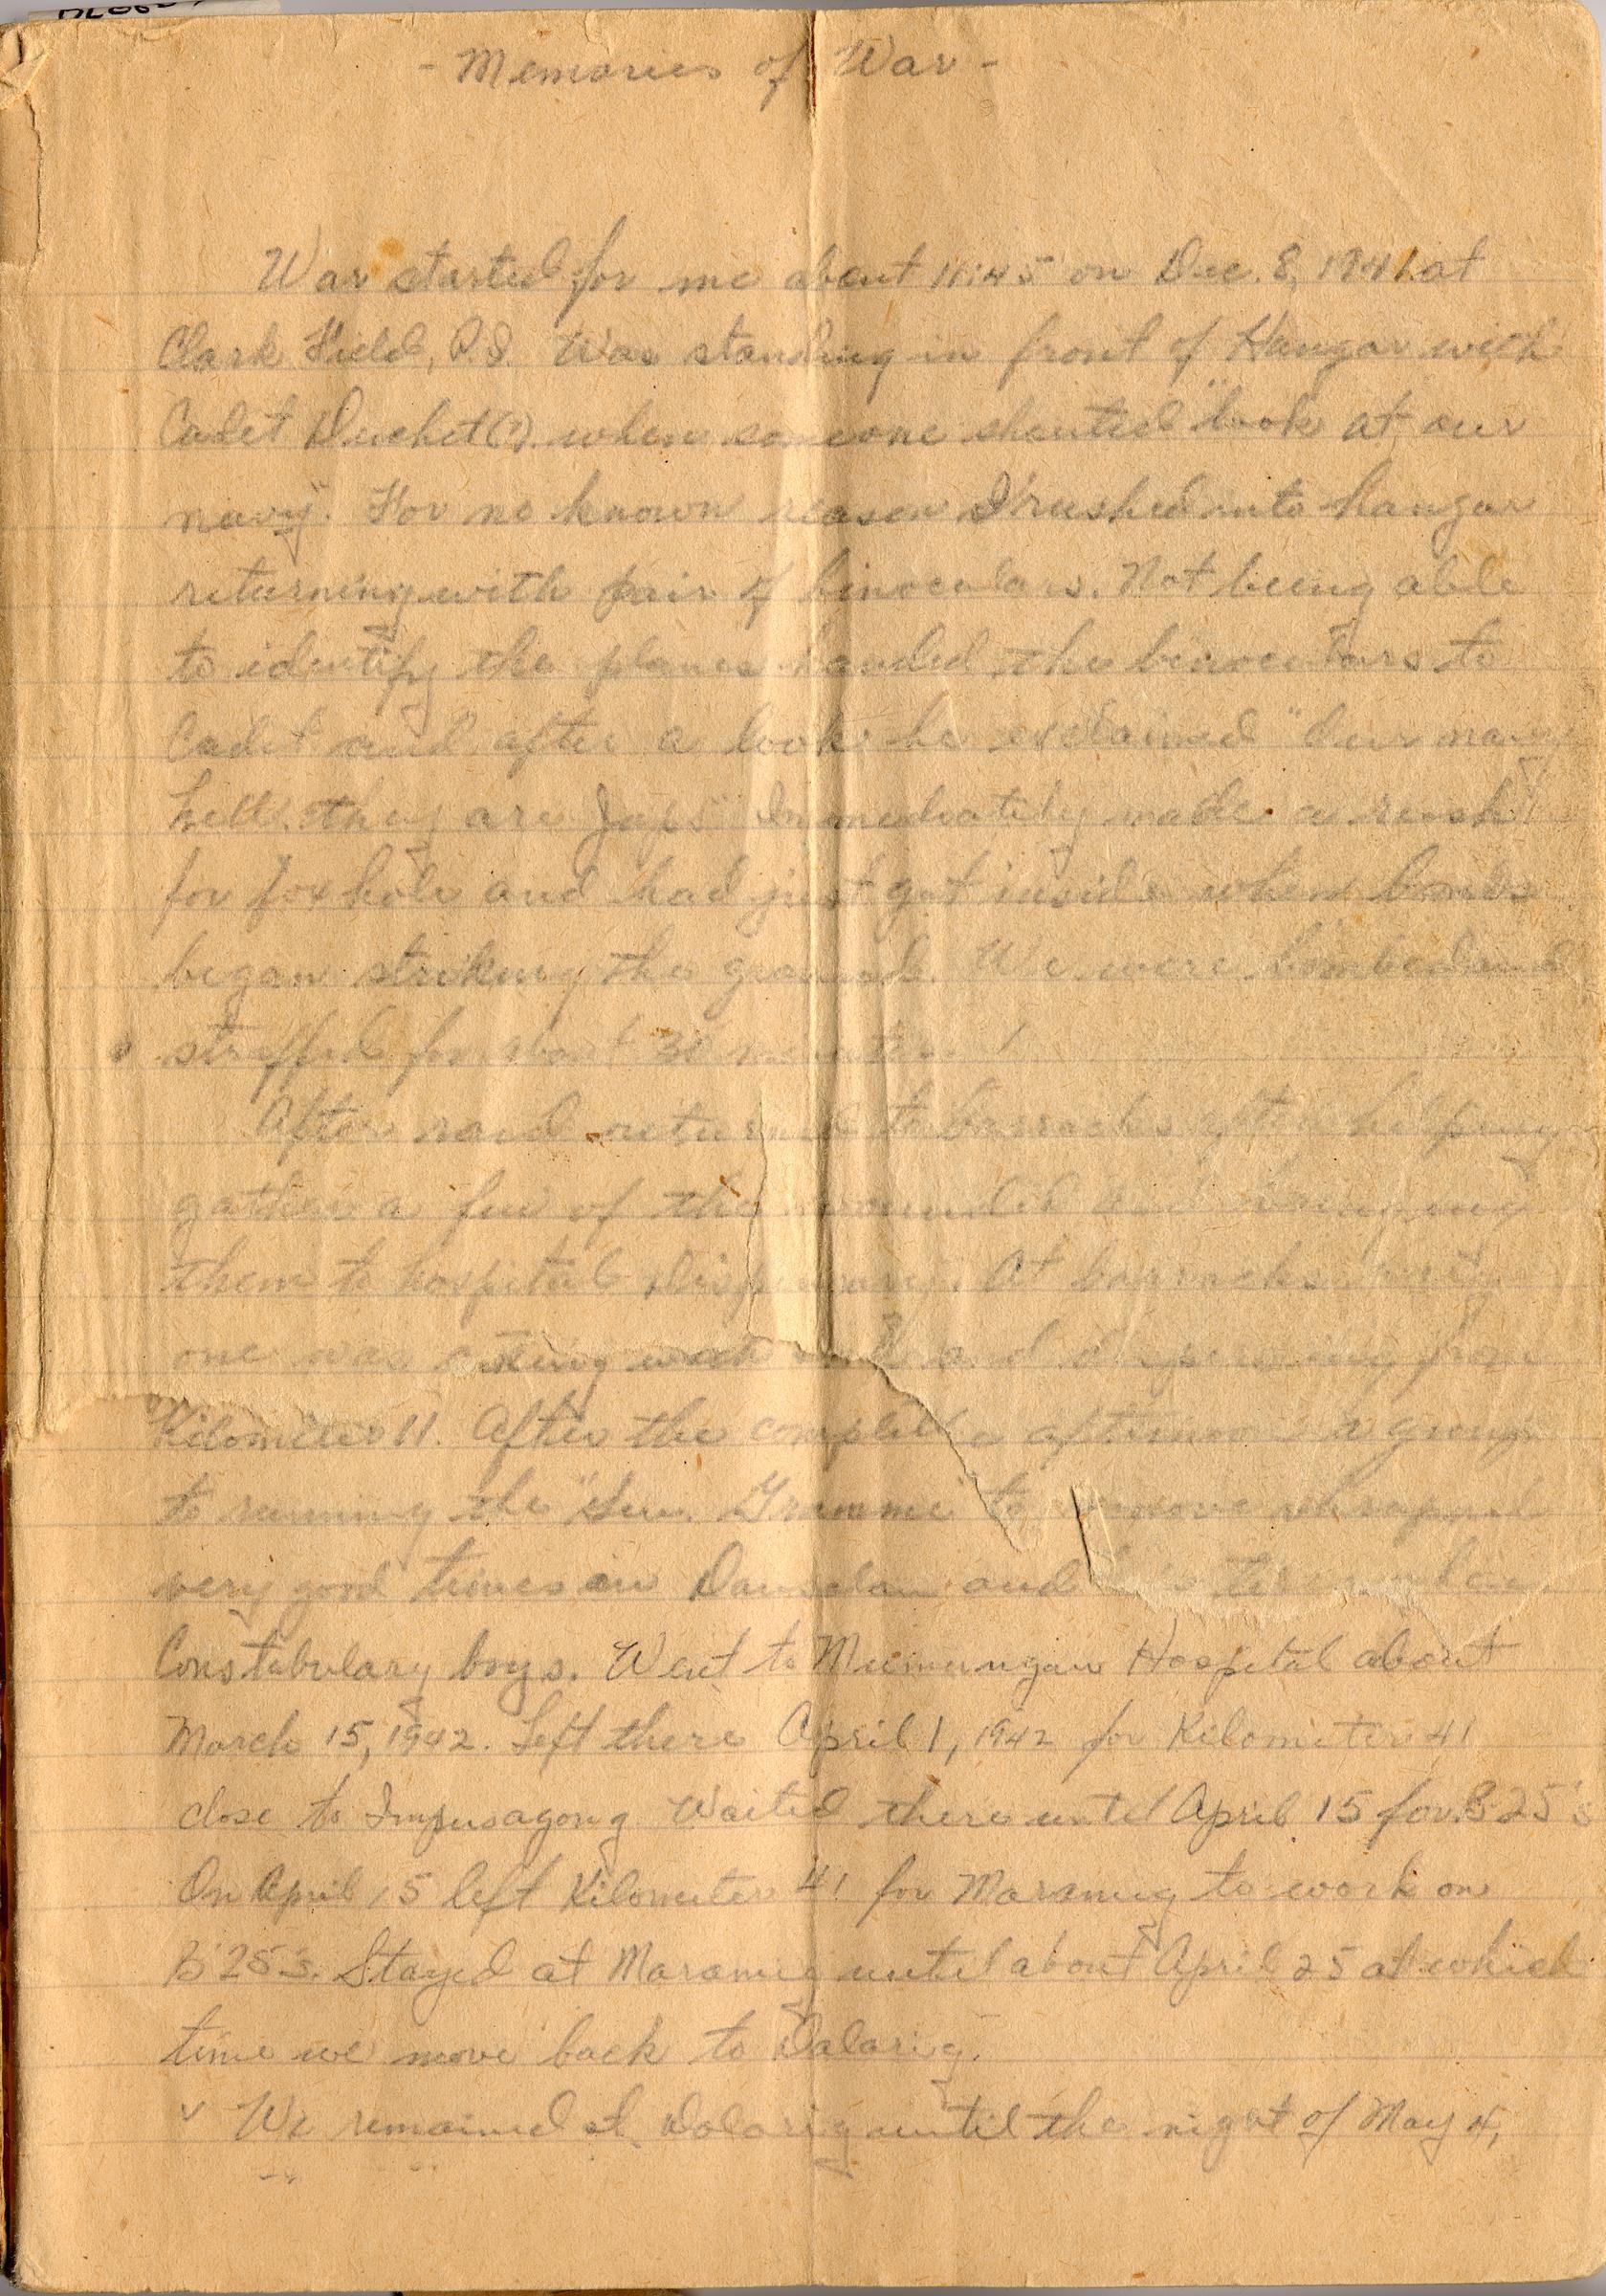 - Memories of War -
War started for me about 11:45 on Dec. 8, 1941 at
Clark Field, P.I. Was standing in front of Hangar with
Cadet Duchet(?) when someone shouted "look at our
navy". For no known reason I rushed into hangar
returning with pair of binoculars. Not being able
to identify the planes handed the binoculars to
Cadet and after a look he exclaimed "Our navy
hell, they are Japs" Immediately made a rush
for foxhole and had just got inside when bombs
began striking the ground. We were bombed and
straffed for about 30 minutes.
After raid returned to barracks after helping
gather a few of the wounded and bringing
them to hospital Dispensary. At barracks every
one was and dispersing from
Kilometer 11. After the complete afternoon a group
to running the to remove shrapnel
very good times on Dansalan and
Constabulary boys. Went to Mumungan Hospital about
March 15, 1942. Left there April 1, 1942 for Kilometer 41
close to Impusagong Waited there until April 15 for B 25's
On April 15 left Kilometer 41 for Maramug to work on
B 25's. Stayed at Maramug until about April 25 at which
time we move back to Dalarig.
We remained at Dalarig until the night of May 4,